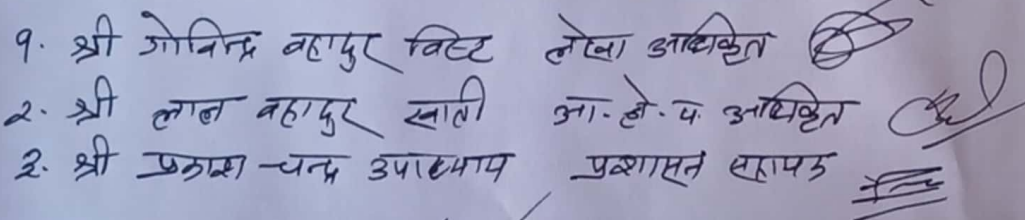 १. श्री गोविन्द्र वहादुर विष्ट लेखा अधिकृत
२. श्री लाल वहादुर खाती आ. ले. प. अधिकृत
३. श्री प्रकाश चन्द्र उपाध्याय प्रशासन सहायक